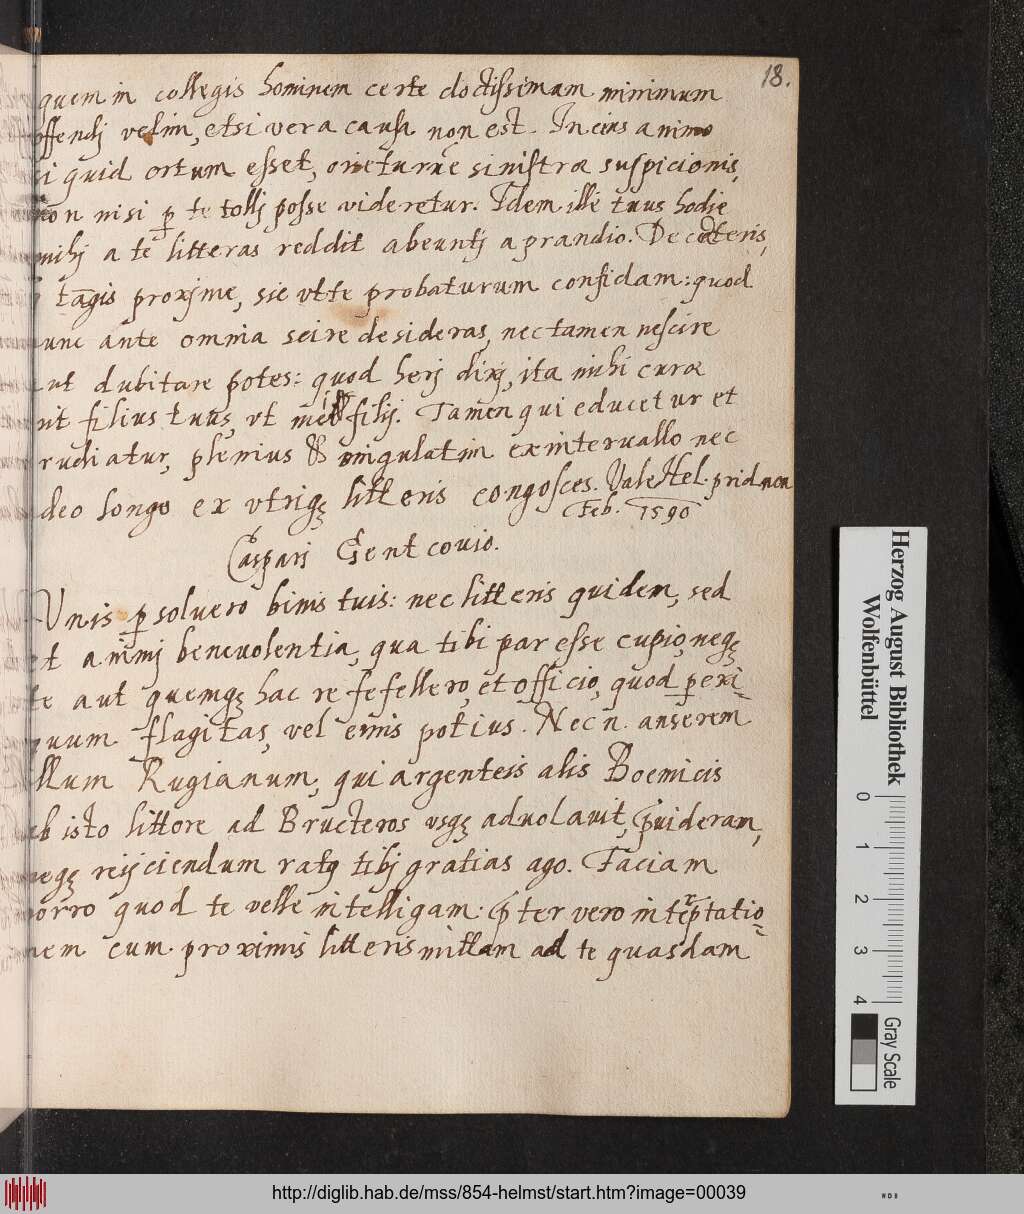 18.
quem in collegis hominem certe doctissimam minimum
offendj velim, etsi vera causa non est. In eius animo
si quid ortum esset, orieturue sinistrae suspicionis,
non nisi p te tollj posse videretur. Idem ille tuus hodie
mihj a te litteras reddit abeuntj a prandio. De caeteris,
tagis proxjme, sic vt te probaturum confidam: quod
unc ante omnia scire desideras, nec tamen nescire
ut dubitare potes: quod herj dixj, ita mihi curae
nt filius tuus, vt mei filij. Tamen qui educetur et
rudiatur, plenius & singulatim ex interuallo nec
deo longo ex vtriqȝ litteris congosces. Vale Hel. prid. non
Feb. 1590
Casparj Gentcouio.
Vnis p soluero binis tuis: nec litteris quidem, sed
et animj beneuolentia, qua tibi par esse cupio, neqȝ
te aut quemqȝ hac re fefellero, et officio, quod p exi-
guum flagitas, vel emis potius. Nec n. anserem
llum Rugianum, qui argenteis alis Boemicis
ab isto littore ad Bructeros vsqȝ aduolauit, puideram,
neqȝ reijciendum ratq tibj gratias ago. Faciam
porro quod te velle intelligam. pter vero interptatio-
nem cum proximis litteris mittam ad te quasdam
Herzog August Bibliothek
Wolfenbüttel
0 1 2 3 4
Gray Scale
http://diglib.hab.de/mss/854-helmst/start.htm?image=00039
WDB